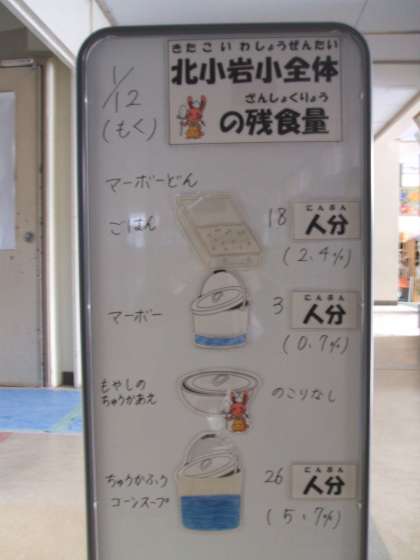 きたこいわしょうぜんたい
北小岩小全体
ざんしょくりょう
の残食量
1/12
(もく)
マーボーどん
ごはん
18
にんぶん
人分
(2.4%)
マーボー
3
にんぶん
人分
(0.7%)
もやしの
ちゅうかあえ
のこりなし
ちゅうかふう
コーンスープ
26
にんぶん
人分
(5.7%)